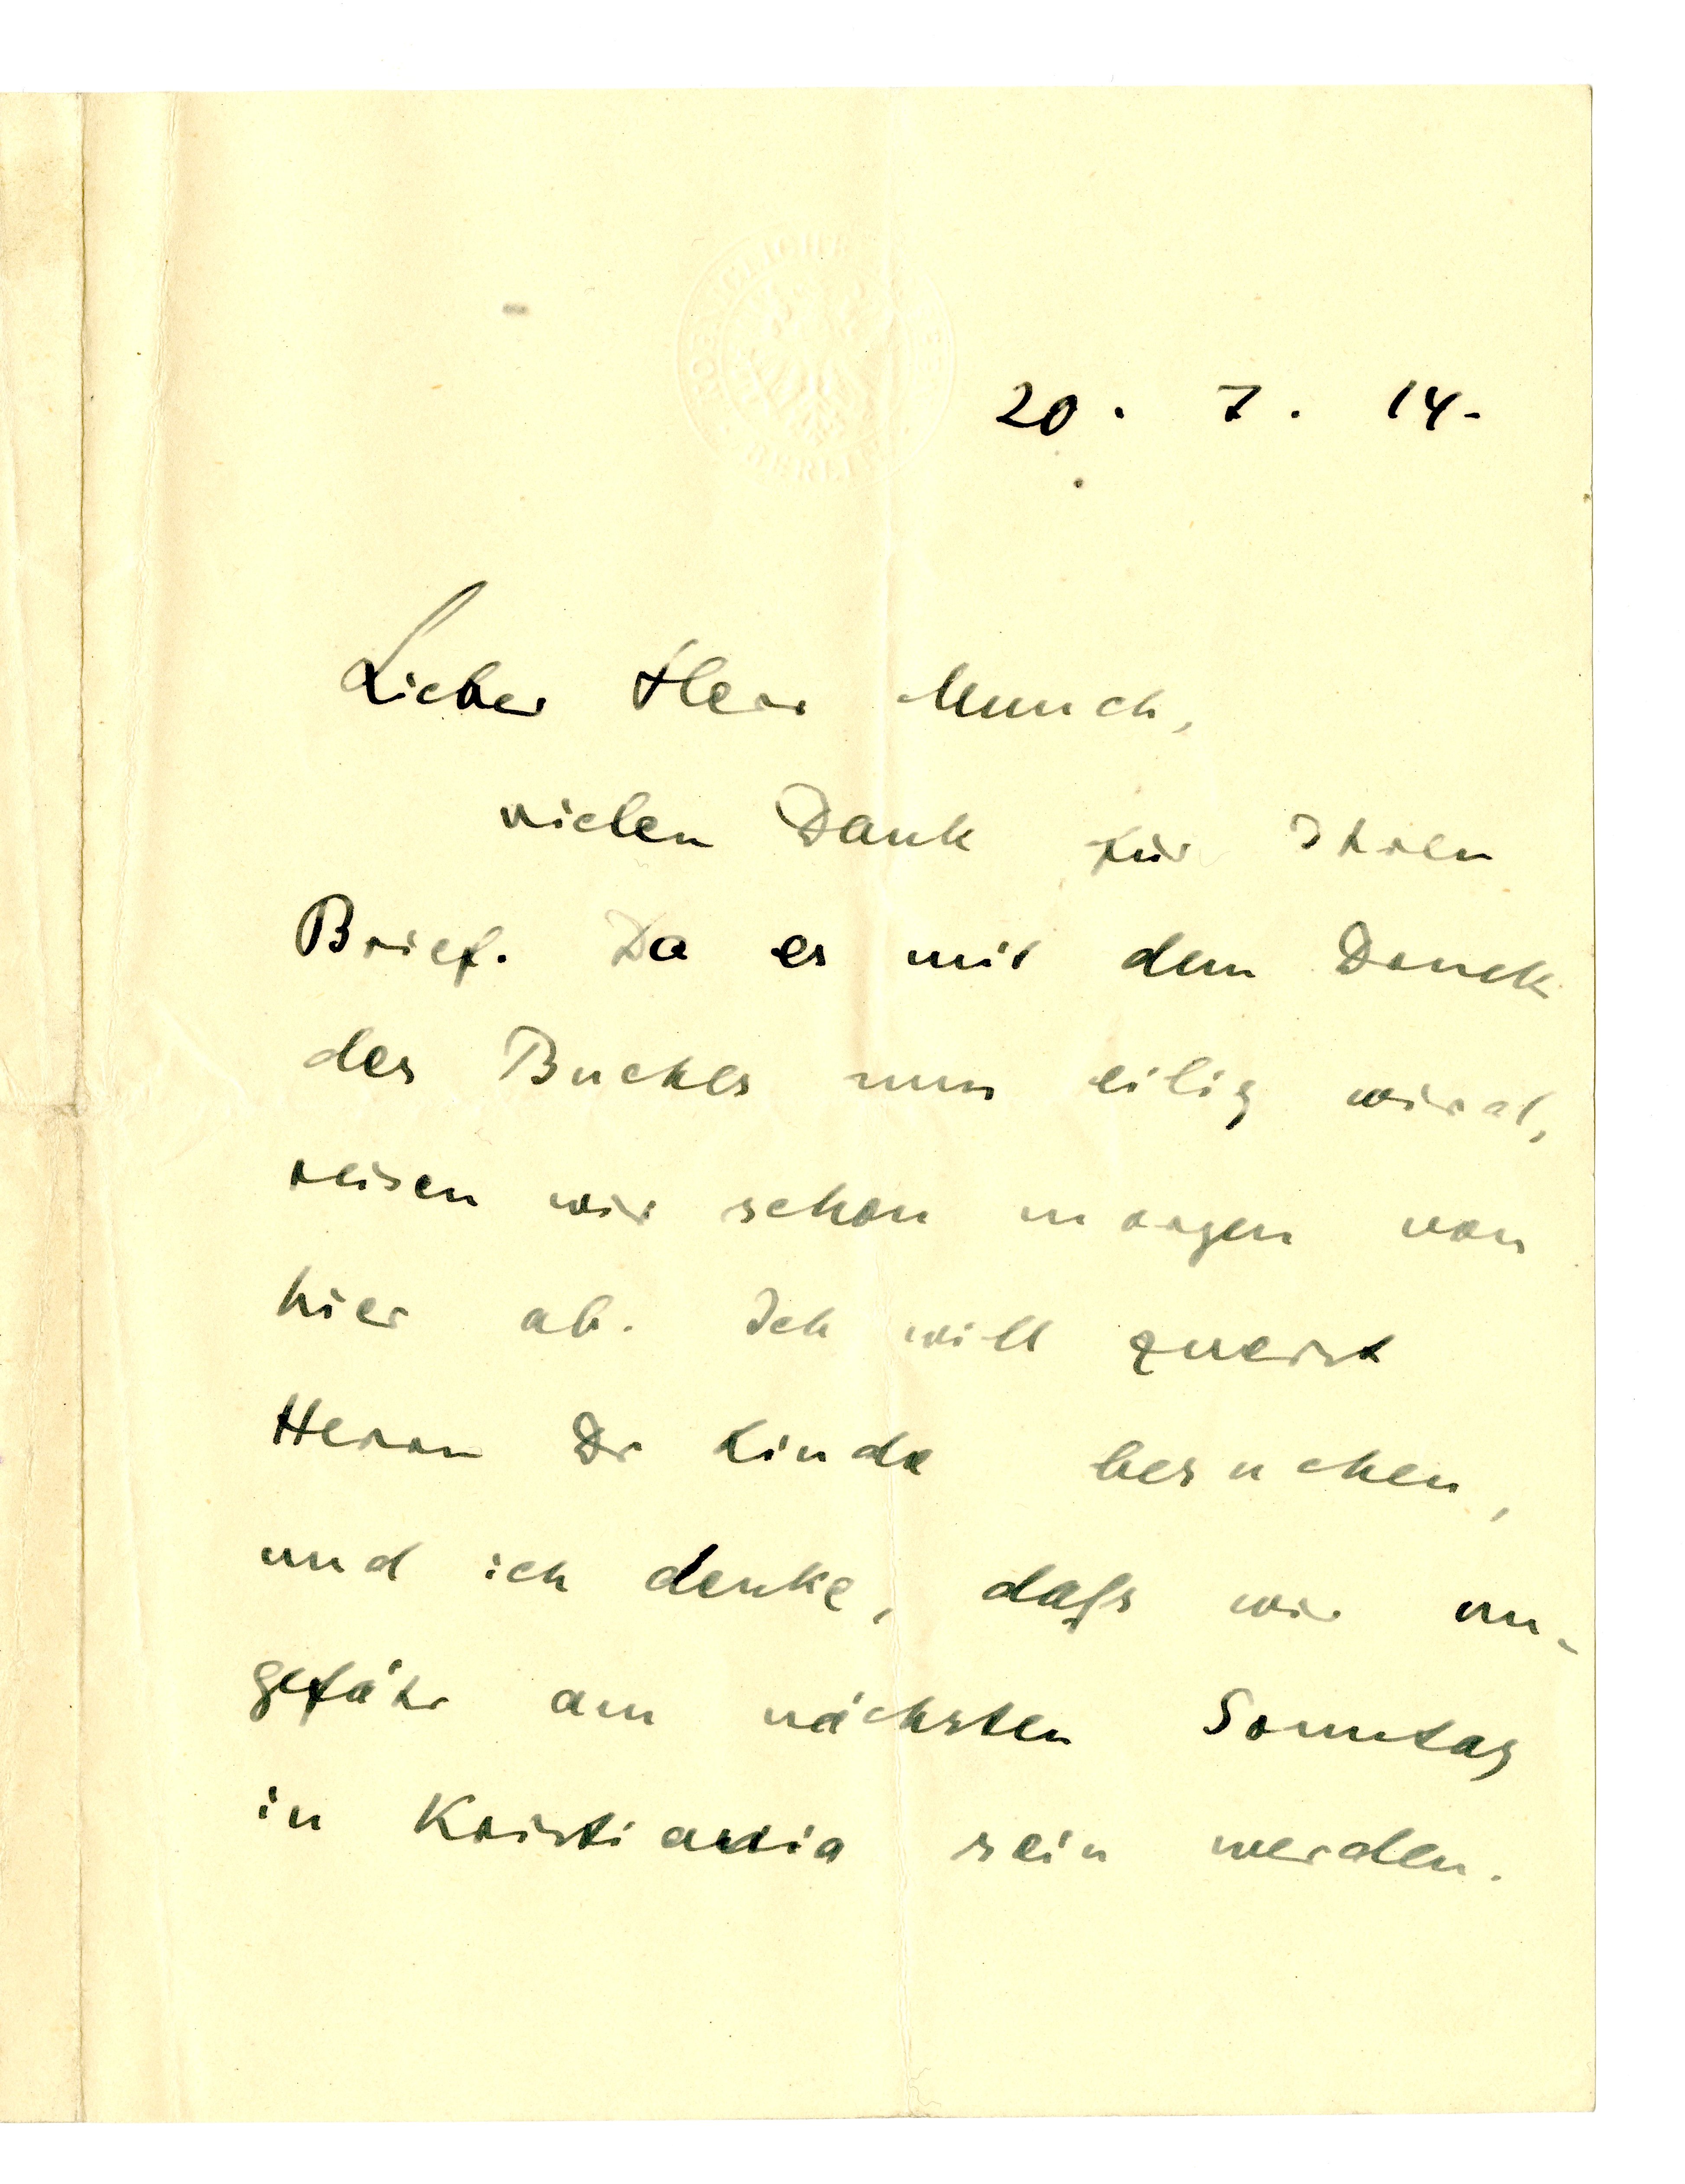 KOENIGLICHE MUSEEN
BERLIN
20. 7. 14.
Lieber Herr Munch,
vielen Dank für Ihren
Brief. Da es mit dem Druck
des Buches nun eilig wird,
reisen wir schon morgen von
hier ab. Ich will zuerst
Herrn Dr Linde besuchen,
und ich denke, dafs wir un-
gefähr am nächsten Sonntag
in Kristiania sein werden.